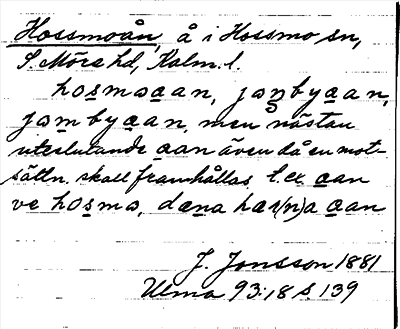 Hossmoån, å i Hossmo sn,
S. Möre hd, Kalm. l.
hosmoaan, jonbyaan,
jombyaan, men nästan
uteslutande aan även då en mot-
sättn. skall framhållas t. ex. aan
ve hosmo, dæna hær(n)a aan
J. Jonsson 1881
Ulma 93:18 s. 139